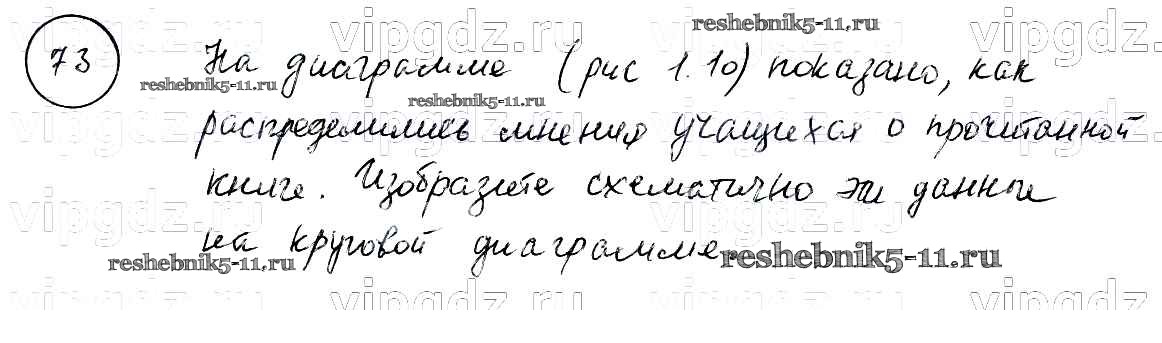 vipgdz.ru vipgdz.ru vipgdz.ru
reshebnik5-11.ru
73 На диаграмме (рис 1.10) показано, как
reshebnik5-11.ru
reshebnik5-11.ru
распределились мнения учащихся о прочитанной
vipgdz.ru vipgdz.ru vipgdz.ru vipgdz.ru
книге. Изобразите схематично эти данные
vipgdz.ru vipgdz.ru vipgdz.ru vipgdz.ru
на круговой диаграмме.
reshebnik5-11.ru
reshebnik5-11.ru
vipgdz.ru vipgdz.ru vipgdz.ru